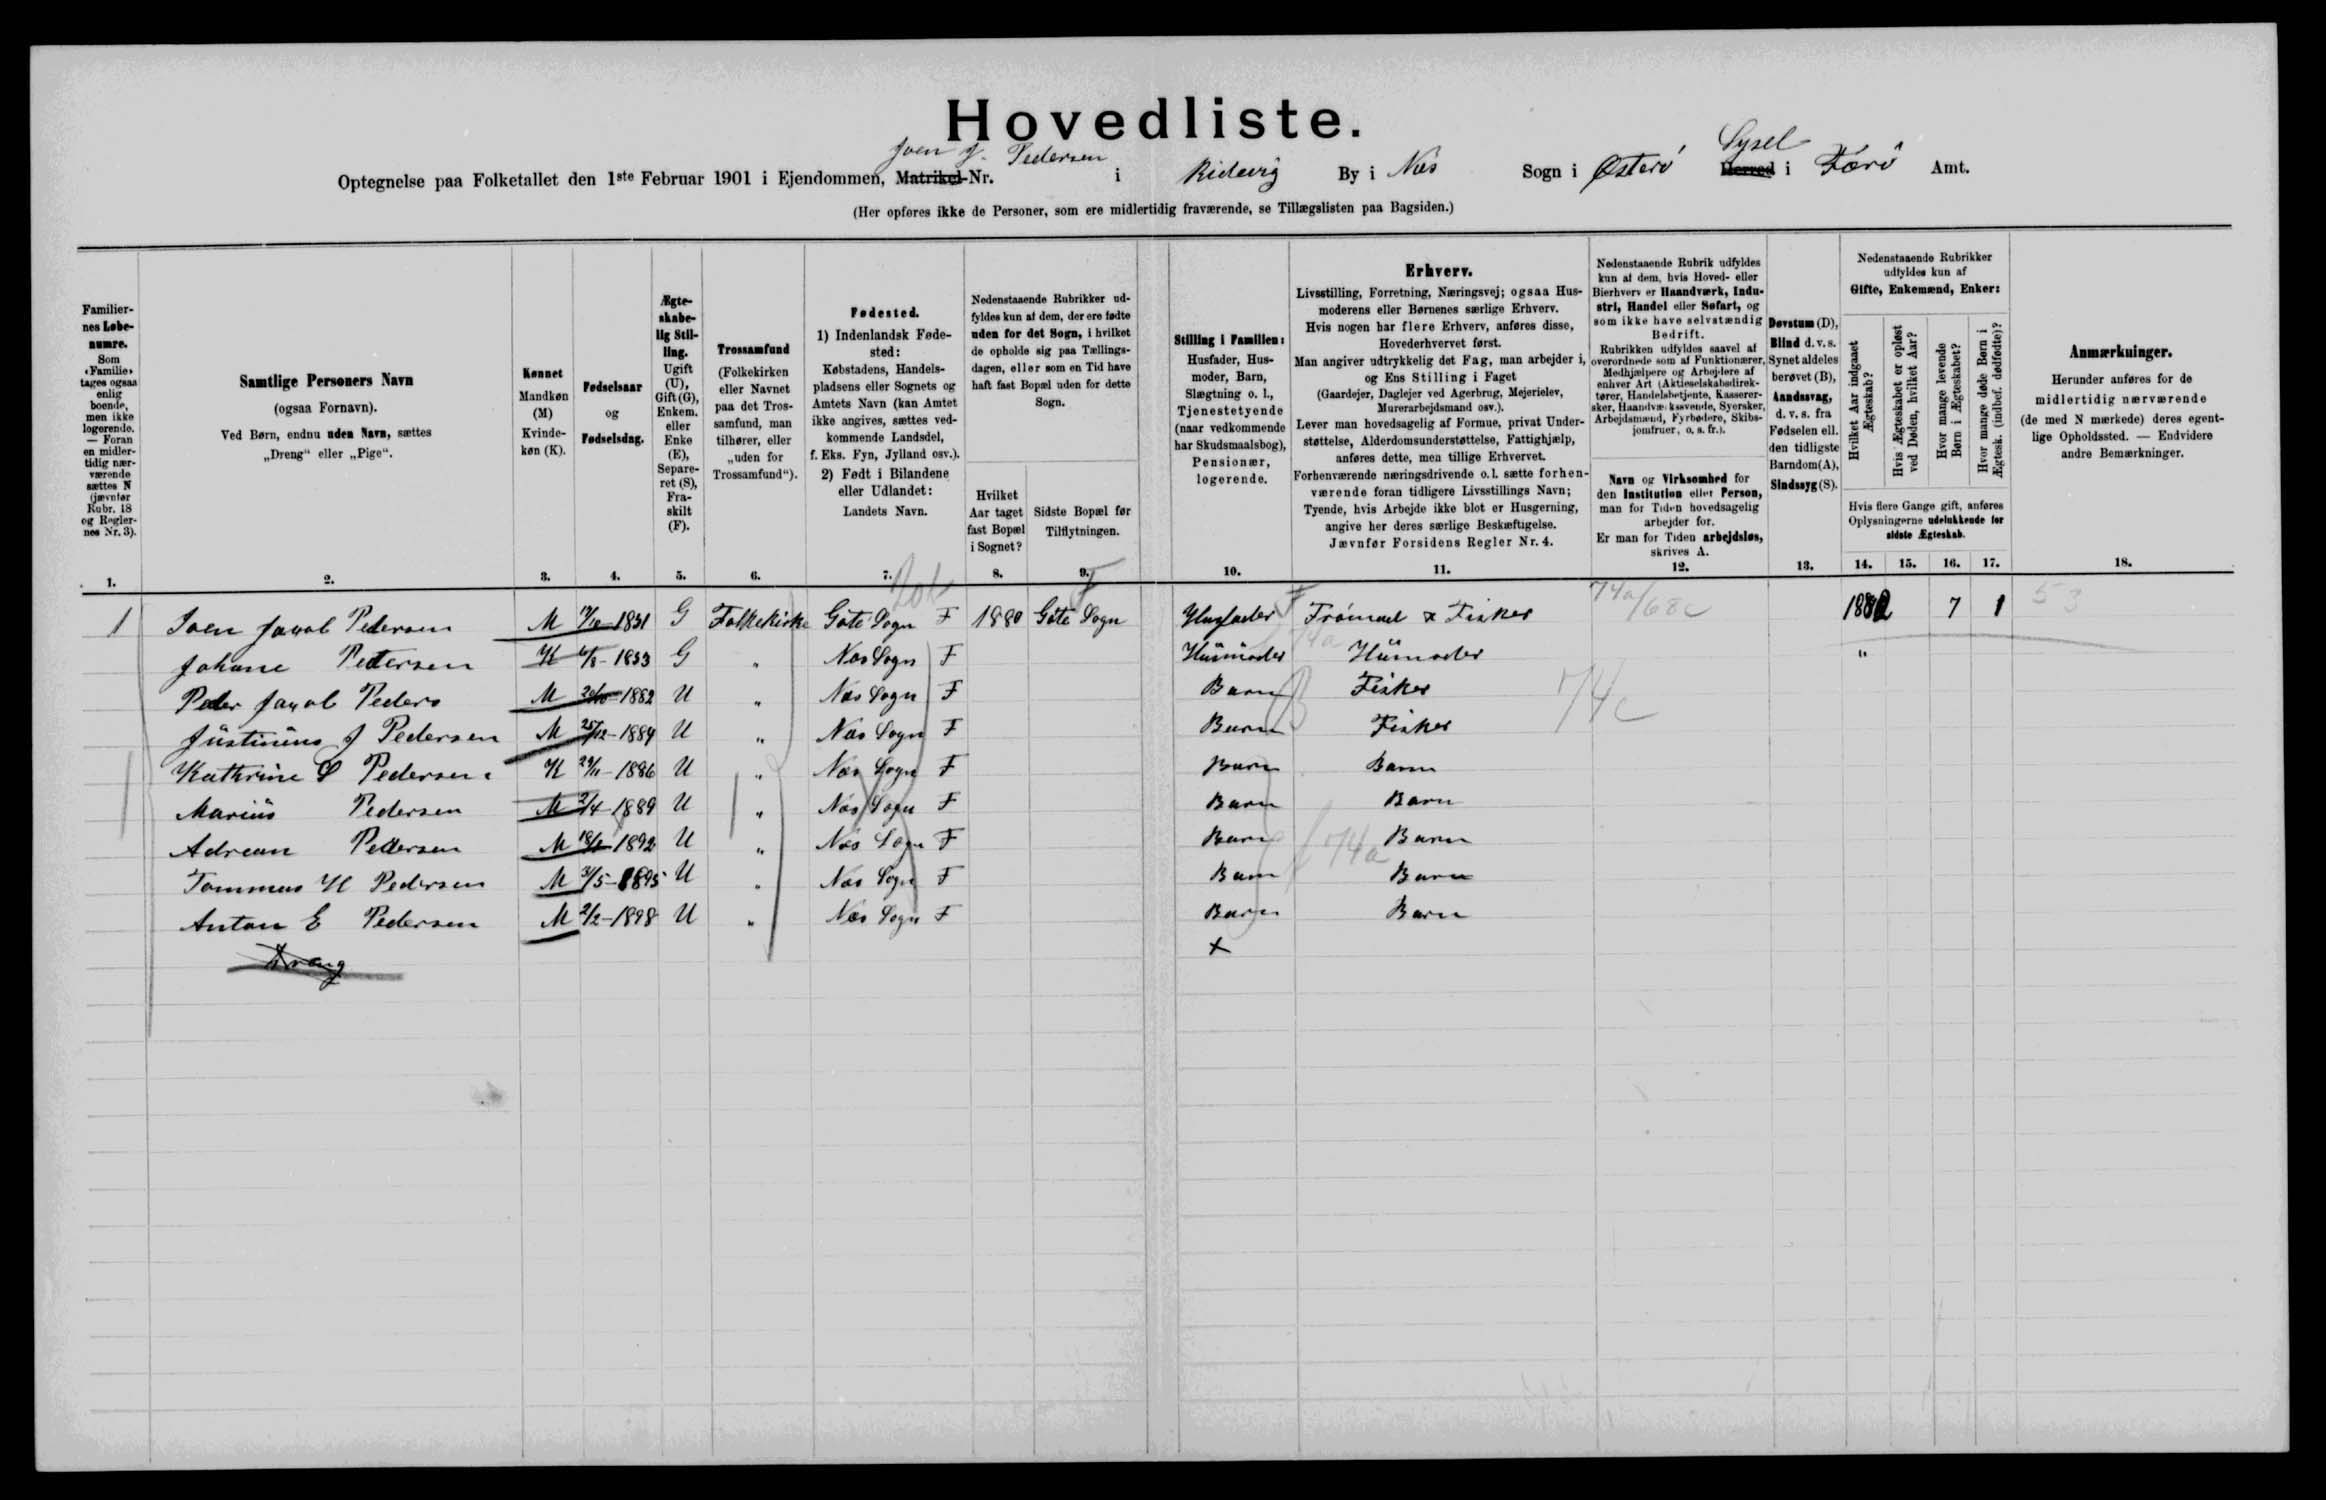 Hovedliste.
Joen J. Pedersen
Sysel
Optegnelse paa Folketallet den 1ste Februar 1901 i Ejendommen, Matrikel-Nr. i Ridevig By i Næs Sogn i Østerø Herred i Færø Amt.
(Her opføres ikke de Personer, som ere midlertidig fraværende, se Tillægslisten paa Bagsiden.)
Familiernes Løbenumre.
Som «Familie» tages ogsaa enlig boende, men ikke logerende. — Foran en midlertidig nærværende sættes N (jævnfør Rubr. 18 og Reglernes Nr. 3).
1.
Samtlige Personers Navn
(ogsaa Fornavn).
Ved Børn, endnu uden Navn, sættes
„Dreng“ eller „Pige“.
2.
Kønnet
Mandkøn (M)
Kvindekøn (K).
3.
Fødselsaar
og
Fødselsdag.
4.
Ægteskabelig Stilling.
Ugift (U), Gift (G), Enkem. eller Enke (E), Separeret (S), Fraskilt (F).
5.
Trossamfund
(Folkekirken eller Navnet paa det Trossamfund, man tilhører, eller „uden for Trossamfund“).
6.
Fødested.
1) Indenlandsk Fødested:
Købstadens, Handelspladsens eller Sognets og Amtets Navn (kan Amtet ikke angives, sættes vedkommende Landsdel, f. Eks. Fyn, Jylland osv.).
2) Født i Bilandene eller Udlandet:
Landets Navn.
7.
Nedenstaaende Rubrikker udfyldes kun af dem, der ere fødte uden for det Sogn, i hvilket de opholde sig paa Tællingsdagen, eller som en Tid have haft fast Bopæl uden for dette Sogn.
Hvilket Aar taget fast Bopæl i Sognet?
8.
Sidste Bopæl før Tilflytningen.
9.
Stilling i Familien:
Husfader, Husmoder, Barn, Slægtning o. l., Tjenestetyende (naar vedkommende har Skudsmaalsbog), Pensionær, logerende.
10.
Erhverv.
Livsstilling, Forretning, Næringsvej; ogsaa Husmoderens eller Børnenes særlige Erhverv.
Hvis nogen har flere Erhverv, anføres disse, Hovederhvervet først.
Man angiver udtrykkelig det Fag, man arbejder i, og Ens Stilling i Faget
(Gaardejer, Daglejer ved Agerbrug, Mejerielev, Murerarbejdsmand osv.).
Lever man hovedsagelig af Formue, privat Understøttelse, Alderdomsunderstøttelse, Fattighjælp, anføres dette, men tillige Erhvervet.
Forhenværende næringsdrivende o. l. sætte forhenværende foran tidligere Livsstillings Navn;
Tyende, hvis Arbejde ikke blot er Husgerning, angive her deres særlige Beskæftigelse.
Jævnfør Forsidens Regler Nr. 4.
11.
Nedenstaaende Rubrik udfyldes kun af dem, hvis Hoved- eller Bierhverv er Haandværk, Industri, Handel eller Søfart, og som ikke have selvstændig Bedrift.
Rubrikken udfyldes saavel af overordnede som af Funktionærer, Medhjælpere og Arbejdere af enhver Art (Aktieselskabsdirektører, Handelsbetjente, Kasserersker, Haandværkssvende, Syersker, Arbejdsmænd, Fyrbødere, Skibsjomfruer, o. s. fr.).
Navn og Virksomhed for den Institution eller Person, man for Tiden hovedsagelig arbejder for.
Er man for Tiden arbejdsløs, skrives A.
12.
Døvstum (D), Blind d. v. s. Synet aldeles berøvet (B), Aandssvag, d. v. s. fra Fødselen ell. den tidligste Barndom (A), Sindssyg (S).
13.
Nedenstaaende Rubrikker udfyldes kun af
Gifte, Enkemænd, Enker:
Hvilket Aar indgaaet Ægteskab?
Hvis Ægteskabet er opløst ved Døden, hvilket Aar?
Hvor mange levende Børn i Ægteskabet?
Hvor mange døde Børn i Ægtesk. (indbef. dødfødte)?
Hvis flere Gange gift, anføres Oplysningerne udelukkende for sidste Ægteskab.
14. 15. 16. 17.
Anmærkninger.
Herunder anføres for de midlertidig nærværende (de med N mærkede) deres egentlige Opholdssted. — Endvidere andre Bemærkninger.
18.
F
F
74a/68c
53
1 Joen Jacob Pedersen M 1831 G Folkekirke Gøte Sogn F 1880 Gøte Sogn Husfader & Fisker 1882 7 1
Johane Petersen K 6/8-1853 G „ Næs Sogn F Husmoder Husmoder „
Peder Jacob Peders M 1882 U „ Næs Sogn F Barn Fisker
74c
Justinius J Pedersen M 25/12-1884 U „ Næs Sogn F Barn Fisker
Kathrine S Pedersen K 29/11-1886 U „ Næs Sogn F Barn Barn
Marius Pedersen M 2/4-1889 U „ Næs Sogn F Barn Barn
Adrean Pedersen M 1892 U „ Næs Sogn F Barn Barn
74a
Tommas H Pedersen M 3/5-1895 U „ Næs Sogn F Barn Barn
Anton E Pedersen M 2/2-1898 U „ Næs Sogn F Barn Barn
Dreng x